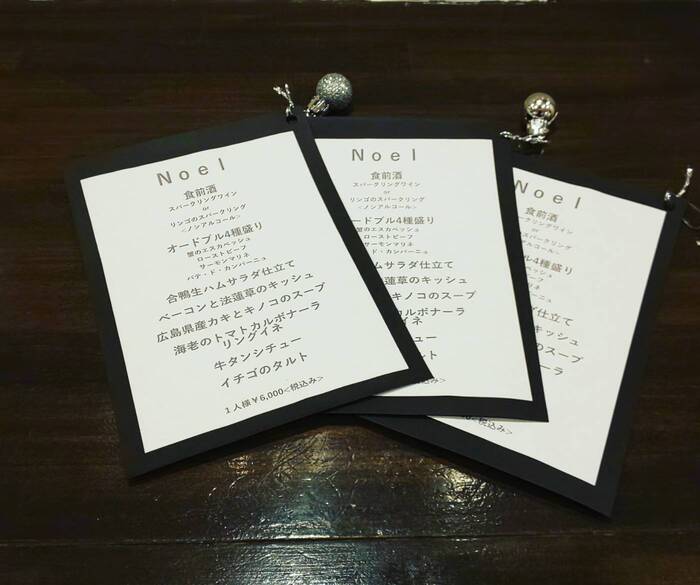 Noel
食前酒
スパークリングワイン
or
リンゴのスパークリング
<ノンアルコール>
オードブル4種盛り
蟹のエスカベッシュ
ローストビーフ
サーモンマリネ
パテ・ド・カンパーニュ
合鴨生ハムサラダ仕立て
ベーコンと法蓮草のキッシュ
広島県産カキとキノコのスープ
海老のトマトカルボナーラ
リングイネ
牛タンシチュー
イチゴのタルト
1人様¥6,000<税込み>
Noel
食前酒
スパークリングワイン
or
リンゴのスパークリング
<ノンアルコール>
ードブル4種盛り
蟹のエスカベッシュ
ローストビーフ
サーモンマリネ
パテ・ド・カンパーニュ
ハムサラダ仕立て
法蓮草のキッシュ
キノコのスープ
カルボナーラ
イネ
チュー
タルト
税込み>
Noel
食前酒
スパークリングワイン
or
スパークリング
アルコール>
ドブル4種盛り
スカベッシュ
ストビーフ
モンマリネ
カンパーニュ
ダ仕立て
キッシュ
のスープ
ーラ
<税込み>